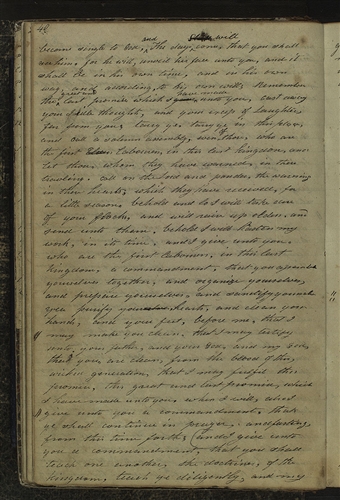 48
and will
become single to God, the days come, that you shall
see him, for he will unveil his face unto you, and it
shall be in his own time, and in his own
way, and according to his own will; Remember
great and have made
the last promise which I unto you, cast away
your idle thoughts, and your excess of laughter
far from you; tarry ye, tarry ye in this place,
and call a solemn assembly, even of those, who are
the first Labourers, in this last kingdom, and
let those whom they have warned, in their
traveling, call on the Lord and ponder the warning
in their hearts, which they have received, for
a little season. Behold and lo I will take care
of your flocks, and will raise up elders, and
send unto them. Behold I will hasten my
work, in its time, and I give unto you,
who are the first Labourers, in this last
kingdom, a commandment, that you assemble
yourselves together, and organize yourselves,
and prepare yourselves, and sanctify yourselves
yea purify your hearts, and clean your
hands, and your feet, before me, that I
may make you clean, that I may testify
unto your father, and your God, and my God,
that you are clean, from the blood of this
wicked generation, that I may fulfil this
promise, this great and last promise, which
I have made unto you, when I will, also I
give unto you a commandment, that
ye shall continue in prayer, and fasting
from this time forth; and I give unto
you a commandment, that you shall
teach one another, the doctrine, of the
kingdom, teach ye diligently, and my